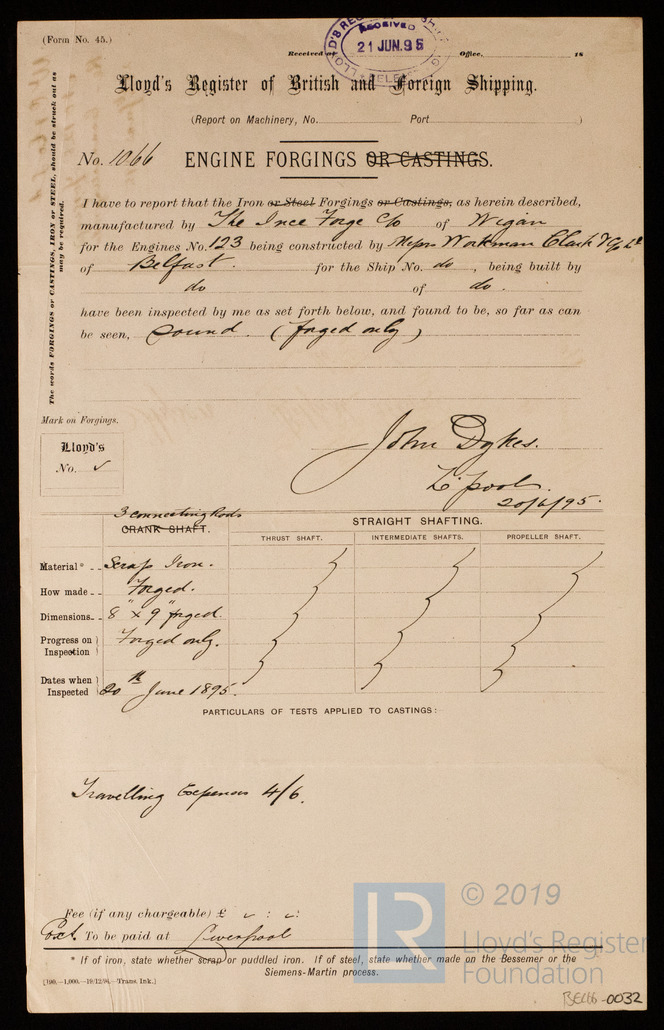 (Form No. 45.)
LLOYD'S REG SHIPPING
RECEIVED
21 JUN. 95
Received at Office, 18
Lloyd's Register of British and Foreign Shipping.
(Report on Machinery, No. Port )
No. 1066 ENGINE FORGINGS OR CASTINGS.
The words FORGINGS or CASTINGS, IRON or STEEL, should be struck out as
may be required.
I have to report that the Iron or Steel Forgings or Castings, as herein described,
manufactured by The Ince Forge C/o of Wigan
for the Engines No. 123 being constructed by Messrs Workman Clark & Co Ld
of Belfast. for the Ship No. do, being built by
do of do.
have been inspected by me as set forth below, and found to be, so far as can
be seen, Sound. (forged only)
Mark on Forgings.
Lloyd's
No. ✓
John Dykes.
L'pool.
20/6/95.
3 connecting Rods
CRANK SHAFT.
STRAIGHT SHAFTING.
THRUST SHAFT. INTERMEDIATE SHAFTS. PROPELLER SHAFT.
Material* Scrap Iron.
How made Forged.
Dimensions 8" x 9" forged
Progress on Inspection Forged only.
Dates when Inspected 20th June 1895.
PARTICULARS OF TESTS APPLIED TO CASTINGS:
Travelling Expenses 4/6.
Fee (if any chargeable) £ : :
To be paid at Liverpool
* If of iron, state whether scrap or puddled iron. If of steel, state whether made on the Bessemer or the
Siemens-Martin process.
[199.—1,000.—19/12/94.—Trans. Ink.]
LR
© 2019
Lloyd's Register
Foundation
BE166-0032